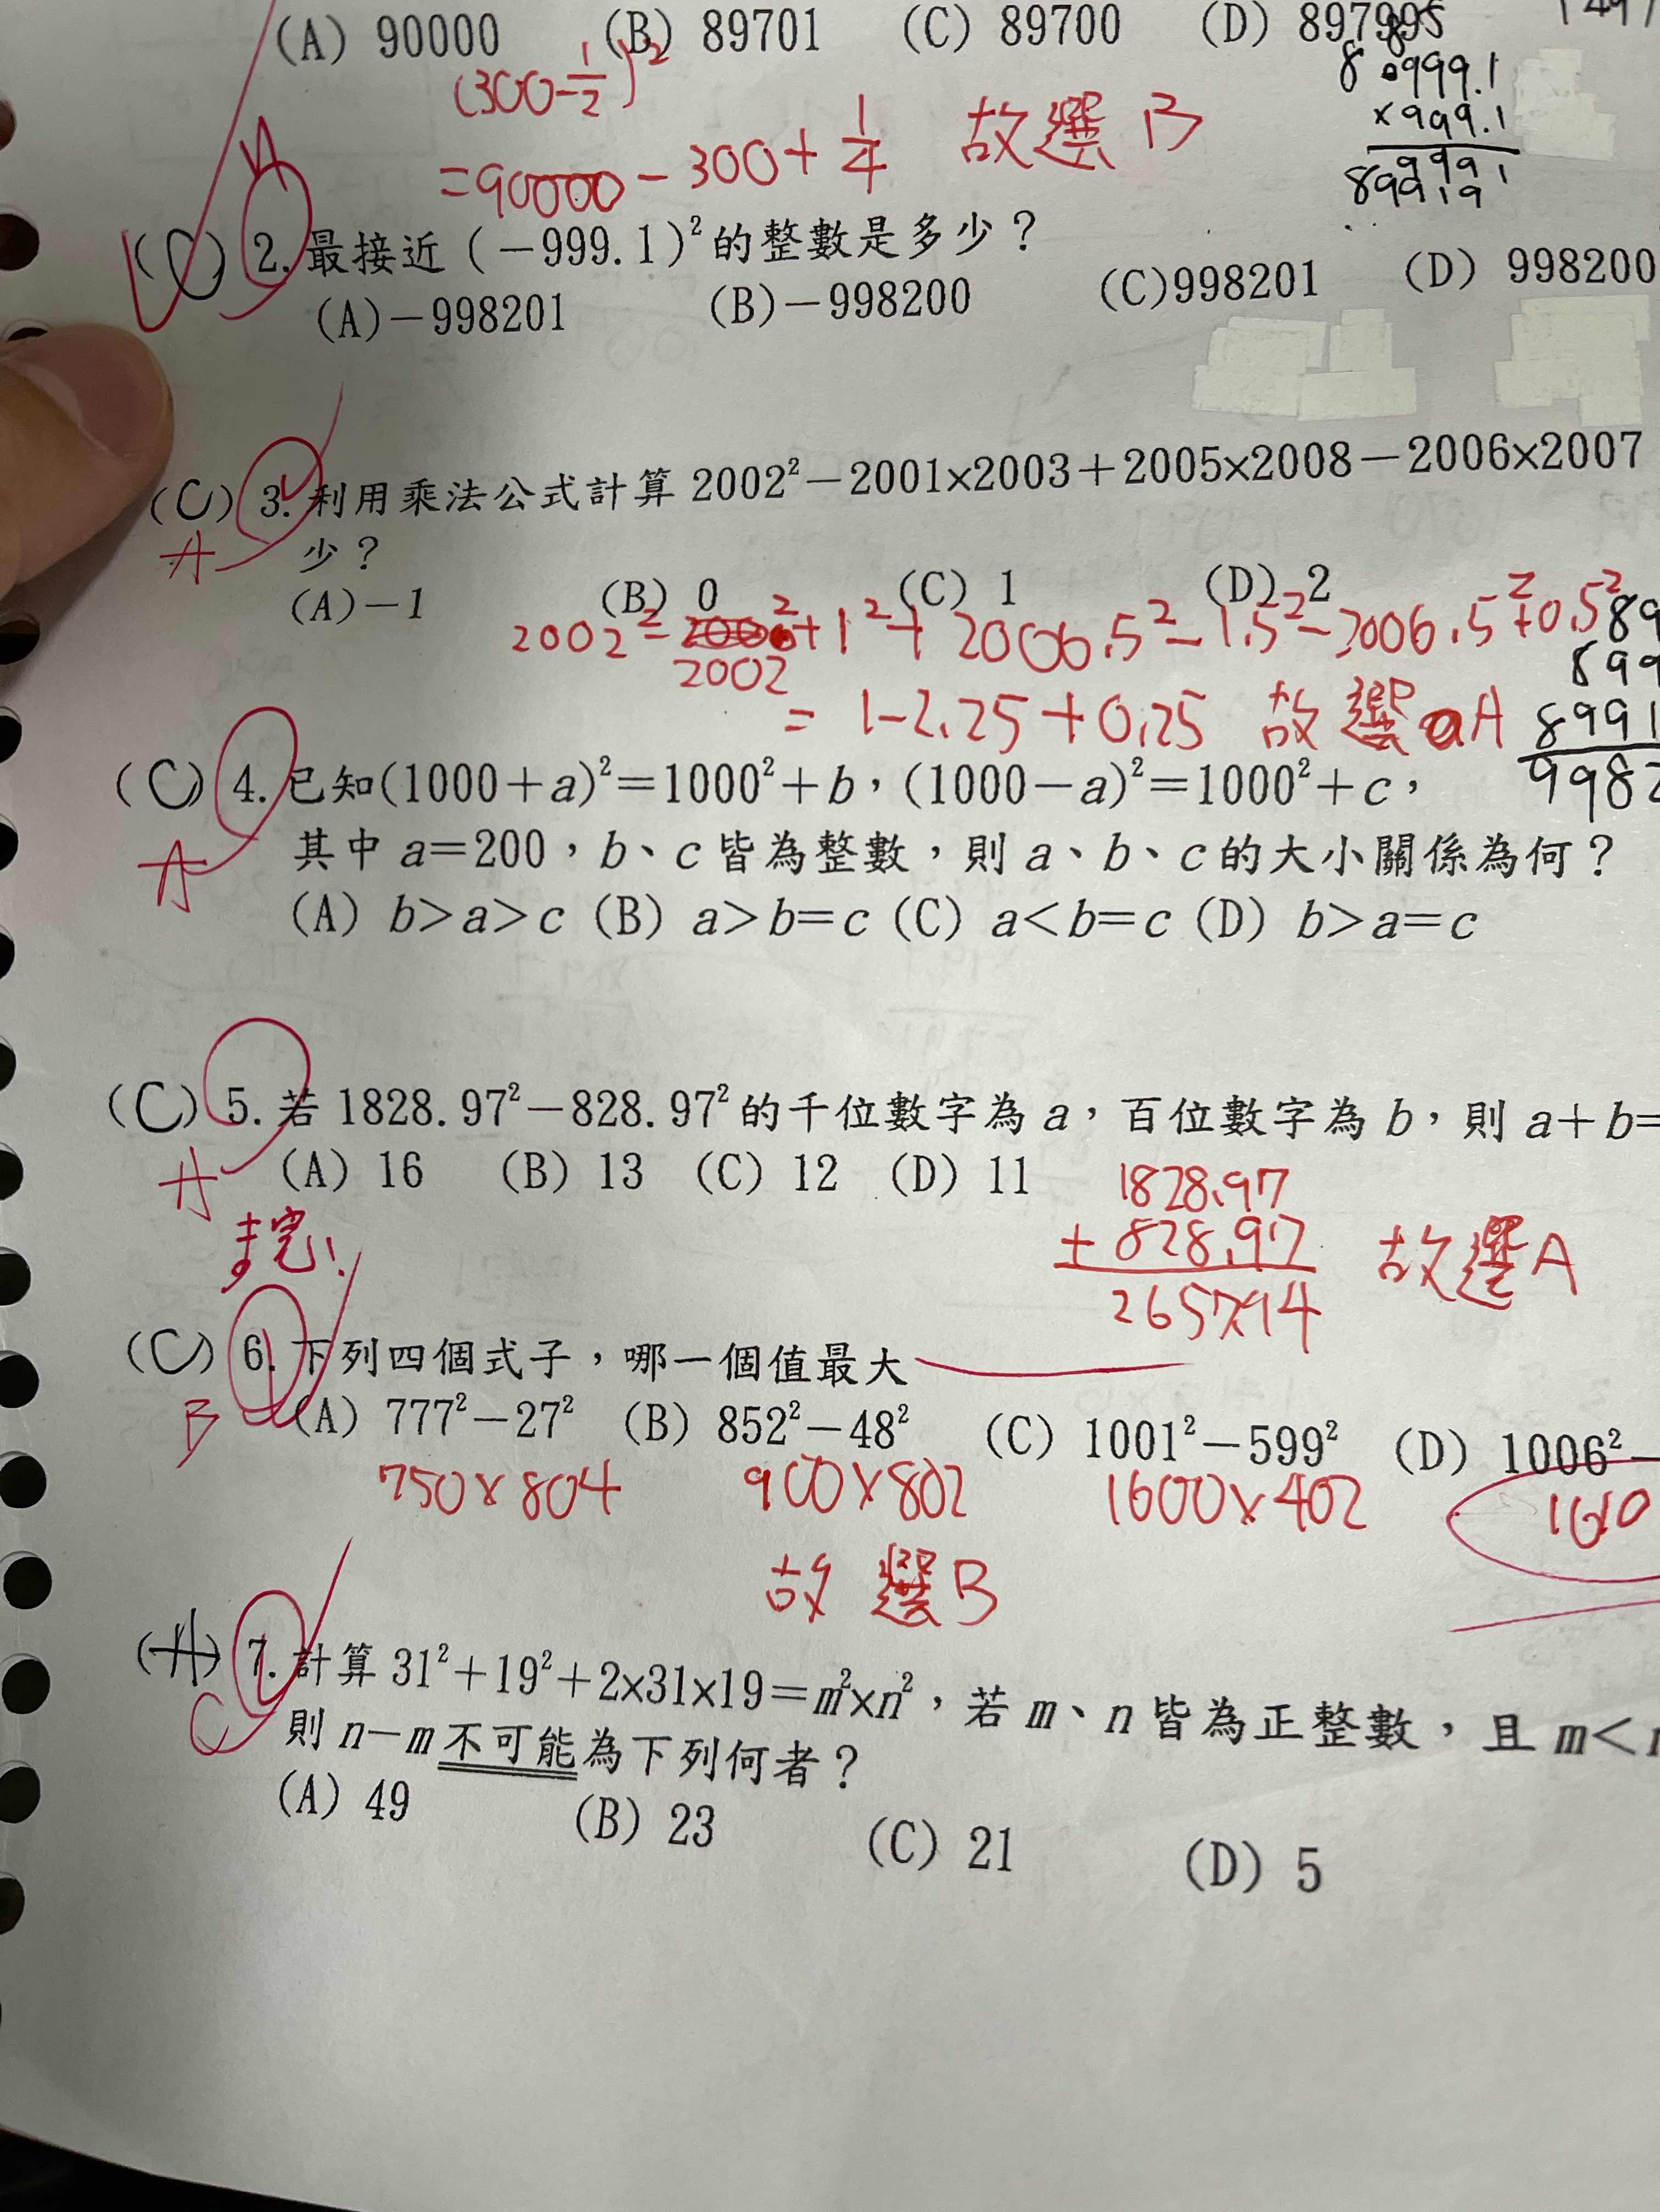 (A) 90000 (B) 89701 (C) 89700 (D) 897995
(300-1/2)²
=90000-300+1/4 故選B
999.1
×999.1
9991
89919
(C) 2. 最接近(-999.1)²的整數是多少?
(A)-998201 (B)-998200 (C)998201 (D) 998200
(C) 3. 利用乘法公式計算 2002²-2001×2003+2005×2008-2006×2007
A 少?
(A)-1 (B) 0 (C) 1 (D) 2
2002²-2002²+1²+2006.5²-1.5²-2006.5²+0.5²
=1-2.25+0.25 故選A
89
899
8991
9982
(C) 4. 已知(1000+a)²=1000²+b,(1000-a)²=1000²+c,
A 其中a=200,b、c皆為整數,則a、b、c的大小關係為何?
(A) b>a>c (B) a>b=c (C) a<b=c (D) b>a=c
(C) 5. 若1828.97²-828.97²的千位數字為a,百位數字為b,則a+b=
A (A) 16 (B) 13 (C) 12 (D) 11
1828.97
+ 828.97
2657.94 故選A
(C) 6. 下列四個式子,哪一個值最大
B (A) 777²-27² (B) 852²-48² (C) 1001²-599² (D) 1006²-
750×804 900×802 1600×402 1610
故選B
(A) 7. 計算31²+19²+2×31×19=m²×n²,若m、n皆為正整數,且m<
C 則n-m不可能為下列何者?
(A) 49 (B) 23 (C) 21 (D) 5